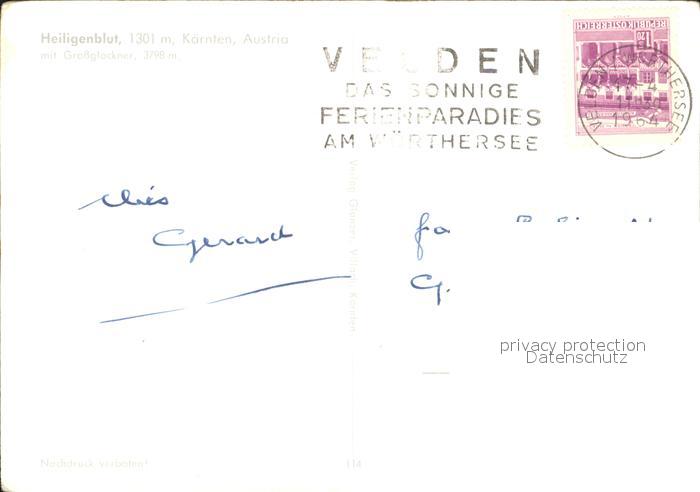 Heiligenblut, 1301 m, Kärnten, Austria
mit Großglockner, 3798 m.
VELDEN
DAS SONNIGE
FERIENPARADIES
AM WÖRTHERSEE
REPUBLIK ÖSTERREICH
1.20
VELDEN AM WÖRTHERSEE
1964
Gerard
fa
G.
Verlag Glanzer, Villach, Kärnten
privacy protection
Datenschutz
Nachdruck verboten!
114